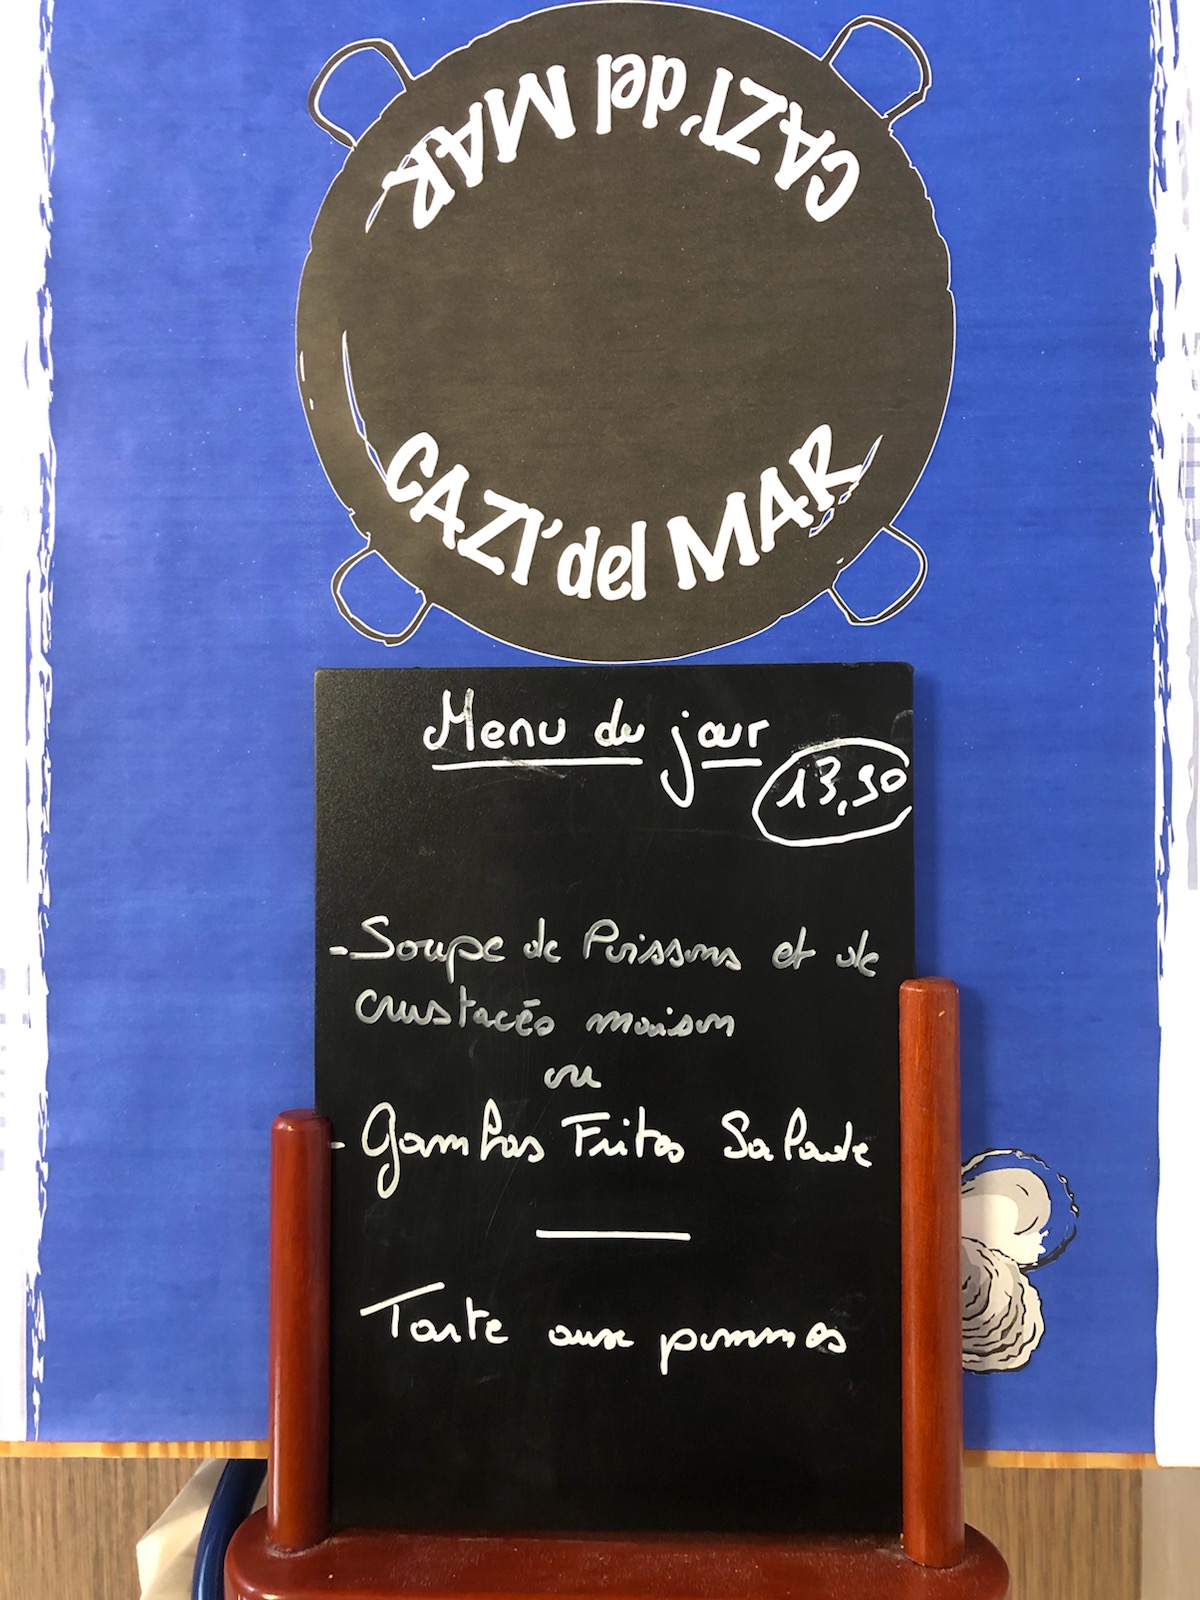 CAZI' del MAR
CAZI' del MAR
Menu du jour
13,90
- Soupe de Poissons et de
crustacés maison
ou
- Gambas Frites Salade
Tarte aux pommes